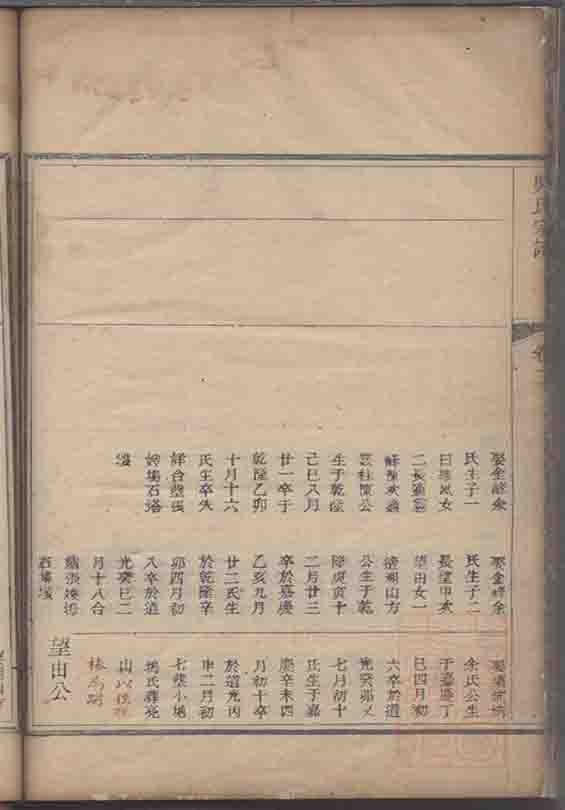 氏宗譜
卷二
娶金峰余
氏生子一
曰維風女
二長適
次適
霞柱陳公
生于乾隆
己巳八月
廿一卒于
乾隆乙卯
十月十六
氏生卒失
詳合塟張
塢石塔
娶金峰余
氏生子二
長望甲次
望由女一
適湖山方
公生于乾
隆庚寅十
二月廿三
卒於嘉慶
乙亥九月
廿二氏生
於乾隆辛
卯四月初
八卒於道
光癸巳二
月十八合
塟張塢
石塔
娶坑
余氏公生
于嘉慶丁
巳四月初
六卒於道
光癸卯又
七月初十
氏生于嘉
慶辛未四
月初十卒
於道光丙
申二月初
七小塢
氏葬
山
望由公